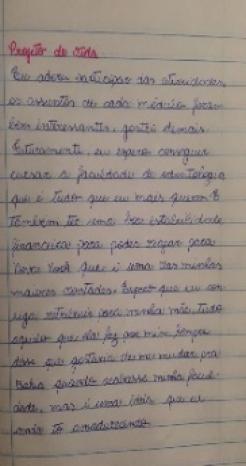 Projeto de vida
Eu adorei participar das atividades,
os assuntos de cada módulo foram
bem interessantes, gostei demais.
Futuramente, eu espero conseguir
cursar a faculdade de odontologia
que é tudo que eu mais quero. E
também ter uma boa estabilidade
financeira para poder viajar para
Nova York que é uma das minhas
maiores vontades. Espero que eu con-
siga retribuir para minha mãe tudo
aquilo que ela fez por mim. Sempre
disse que gostaria de me mudar pra
Bahia quando acabasse minha facul-
dade, mas é uma ideia que eu
ainda tô amadurecendo